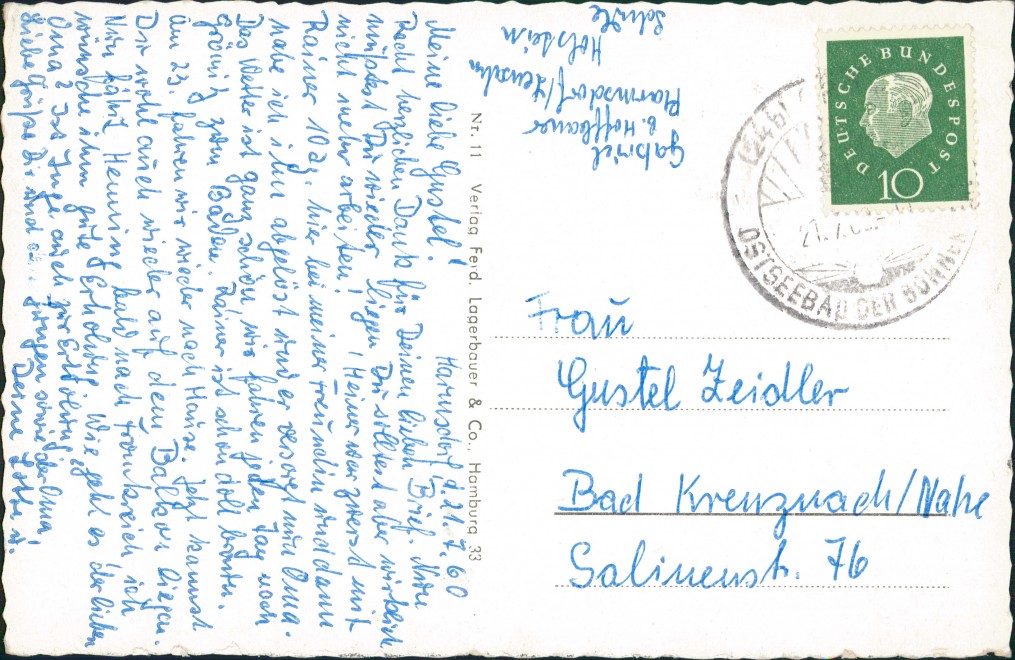 Harmsdorf, d. 21.7.60
Meine liebe Gustel!
Recht herzlichen Dank für Deinen lieben Brief. Nun
müßtest Du wieder liegen. Du solltest aber wirklich
nicht mehr arbeiten! Heiner war zuerst mit
Rainer 10 Tg. hier bei meiner Freundin und dann
habe ich ihn abgelöst und er versorgt nun Oma.
Das Wetter ist ganz schön, wir fahren jeden Tag nach
Grömitz zum Baden. Rainer ist schon doll braun.
Am 23. fahren wir wieder nach Hause. Jetzt kannst
Du wohl auch wieder auf dem Balkon liegen.
Nun fährt Henning bald nach Frankreich ich
wünsche ihm gute Erholung. Wie geht es der lieben
Oma? Ist Inge auch zur Erholung?
Liebe Grüße Dir und den Jungen sowie der Oma!
Deine Lotte u.
Gabriel
b. Hoffbauer
Harmsdorf/Lensahn
Holstein
Schule
Nr. 11 Verlag Ferd. Lagerbauer & Co., Hamburg 33
DEUTSCHE BUNDESPOST
10
(24b)
21.7.60
OSTSEEBAD DER SONNE
Frau
Gustel Zeidler
Bad Kreuznach/Nahe
Salinenstr. 76